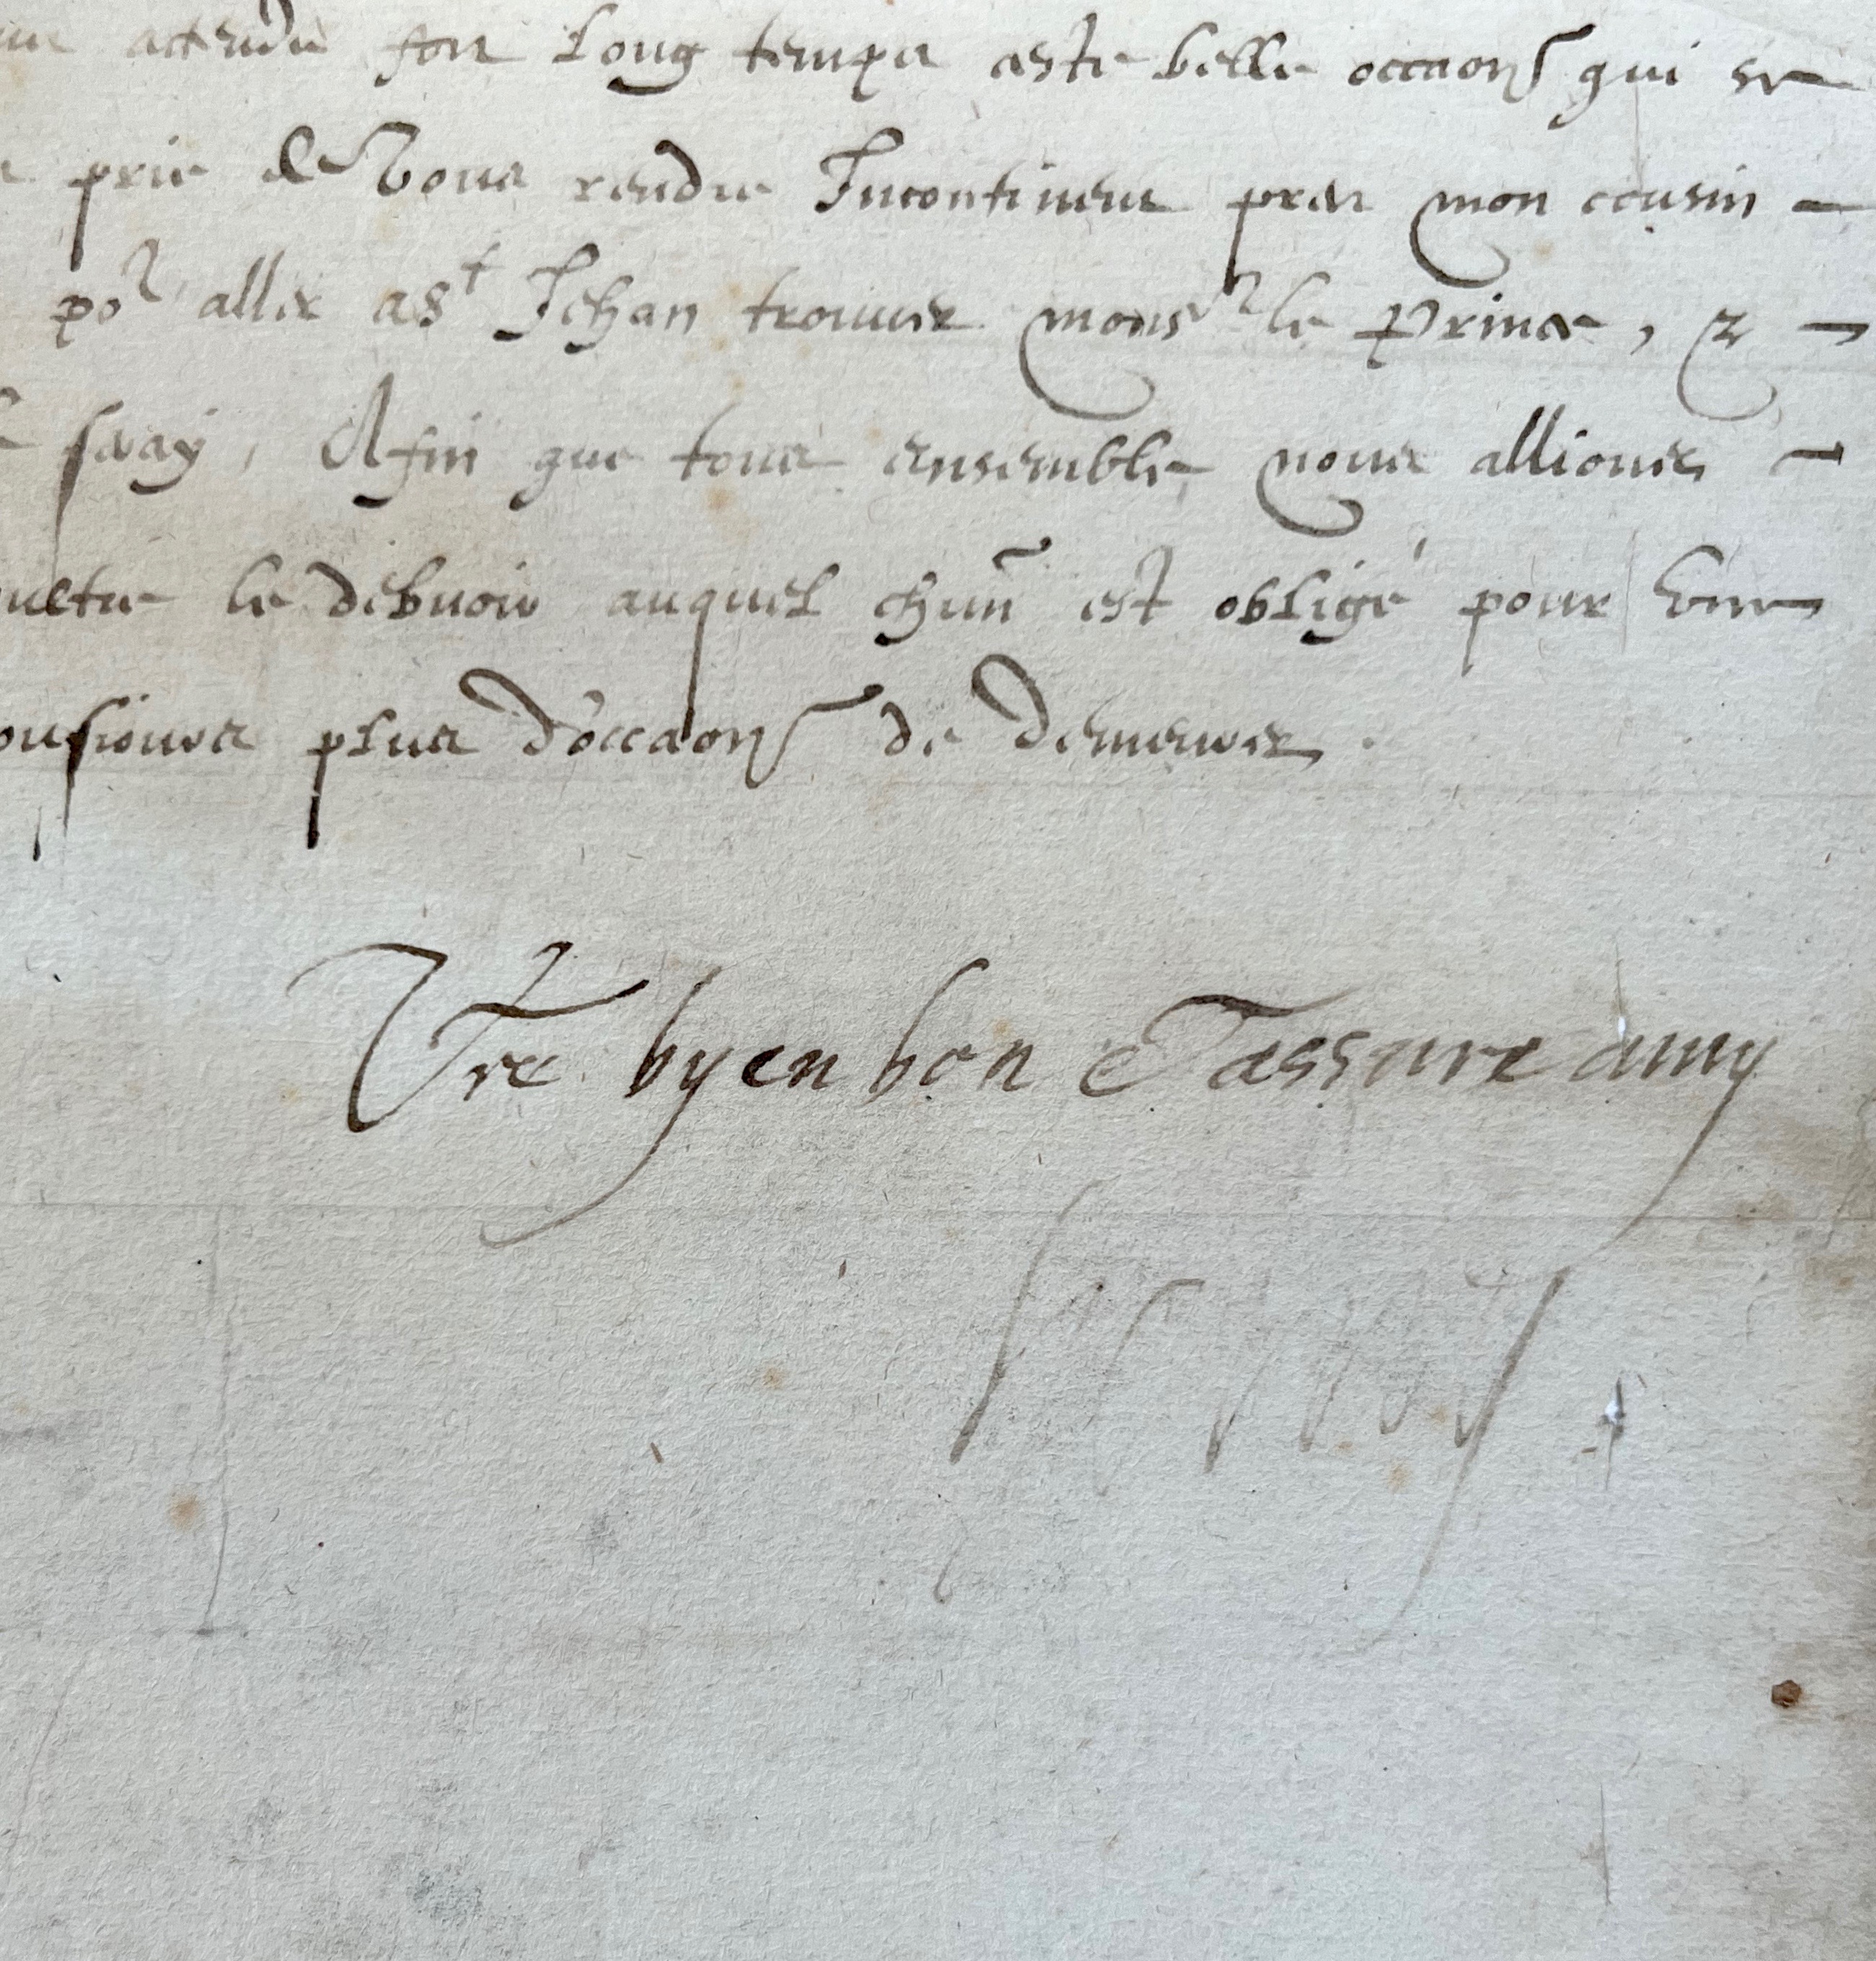 attendu fort Long temps ceste belle occaon qui se
prie de Vous rendre Incontinent pres mon cousin
por aller a St Jehan trouver monsr le Prince, &
seray, Afin que tous ensemble nous allions
le debuoir auquel chun est obligé pour
plus d'occaon de demeurer.
Vre byen bon et assure amy
Henry